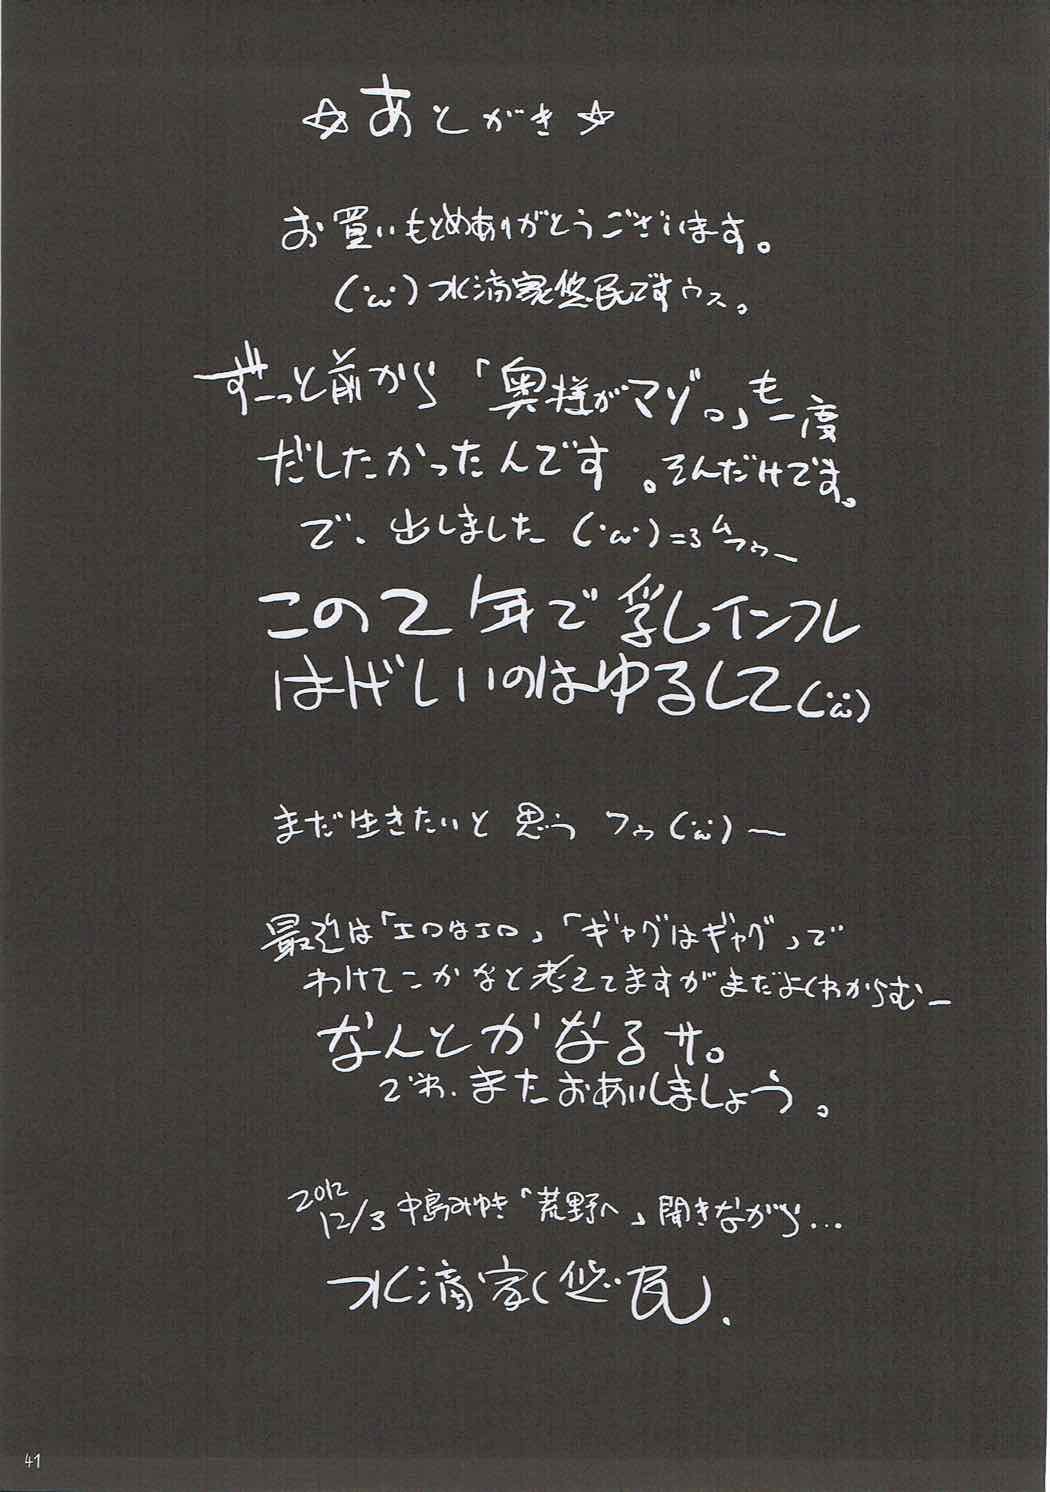 ☆あとがき☆
お買いもとめありがとうございます。
(´ω`)水滴家悠民ですウス。
ずーっと前から「奥様がマゾ。」も一度
だしたかったんです。そんだけです。
で、出しました(´ω`)=3ムフゥー
この2年で乳しインフレ
はげしいのはゆるして(´ω`)
まだ生きたいと思うフゥ(´ω`)ー
最近は「エロはエロ」「ギャグはギャグ」で
わけてこかなと考えてますがまだよくわからむー
なんとかなるサ。
でわ、またおあいしましょう。
2012
12/3 中島みゆき「荒野へ」聞きながら...
水滴家 悠民.
41